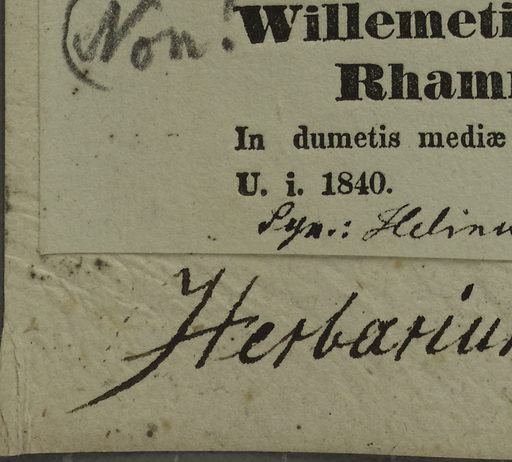 (Non! Willemeti
Rham
In dumetis mediæ
U. i. 1840.
Syn.: Helinu
Herbariu